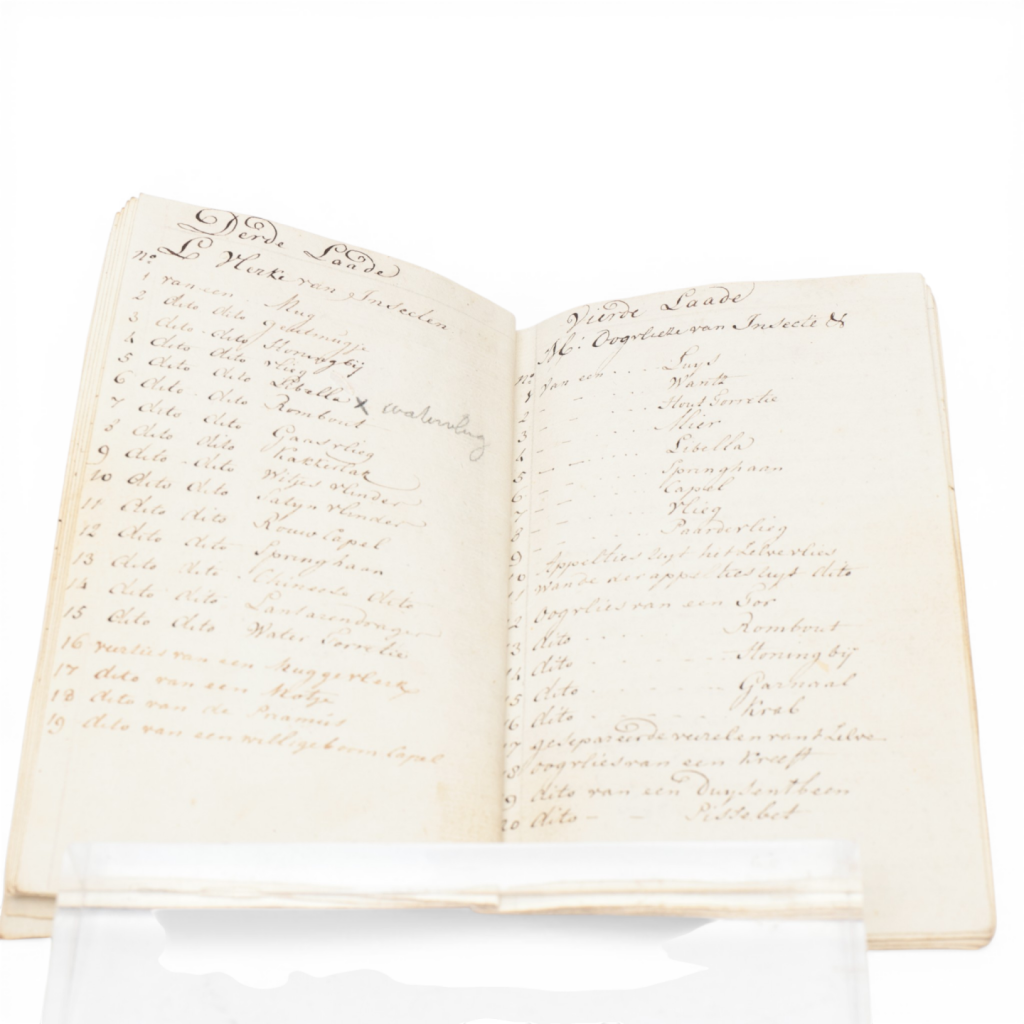 Derde Laade
L Vlerke van Insecten
no
1 van een Mug
2 dito dito
3 dito dito Honingbij
4 dito dito vlieg
5 dito dito Libella x
6 dito dito Rombout
7 dito dito Gaasvlieg
8 dito dito Kakkerlak
9 dito dito Witjes vlinder
10 dito dito Satyn vlinder
11 dito dito Rouw Capel
12 dito dito Springhaan
13 dito dito Chineese dito
14 dito dito Lantarendrager
15 dito dito Water Torretie
16 van een
17 dito van een Motje
18 dito van de
19 dito van een willigeboom Capel
Vierde Laade
M: Oogvlieze van Insecte &
no
1 van een .... Luys
2 – – .... Wants
3 – – .... Hout Torretie
4 – – .... Mier
5 – – .... Libella
6 – – .... Springhaan
7 – – .... Capel
8 – – .... Vlieg
9 – – .... Paardevlieg
10 het zelve vlies
11 van de dito
12 Oogvlies van een Tor
13 dito Rombout
14 dito Honingbij
15 dito Garnaal
16 dito Krab
17 gesepareerde van't zelve
18 oogvlies van een Kreeft
19 dito van een Duysentbeen
20 dito – – Pissebet